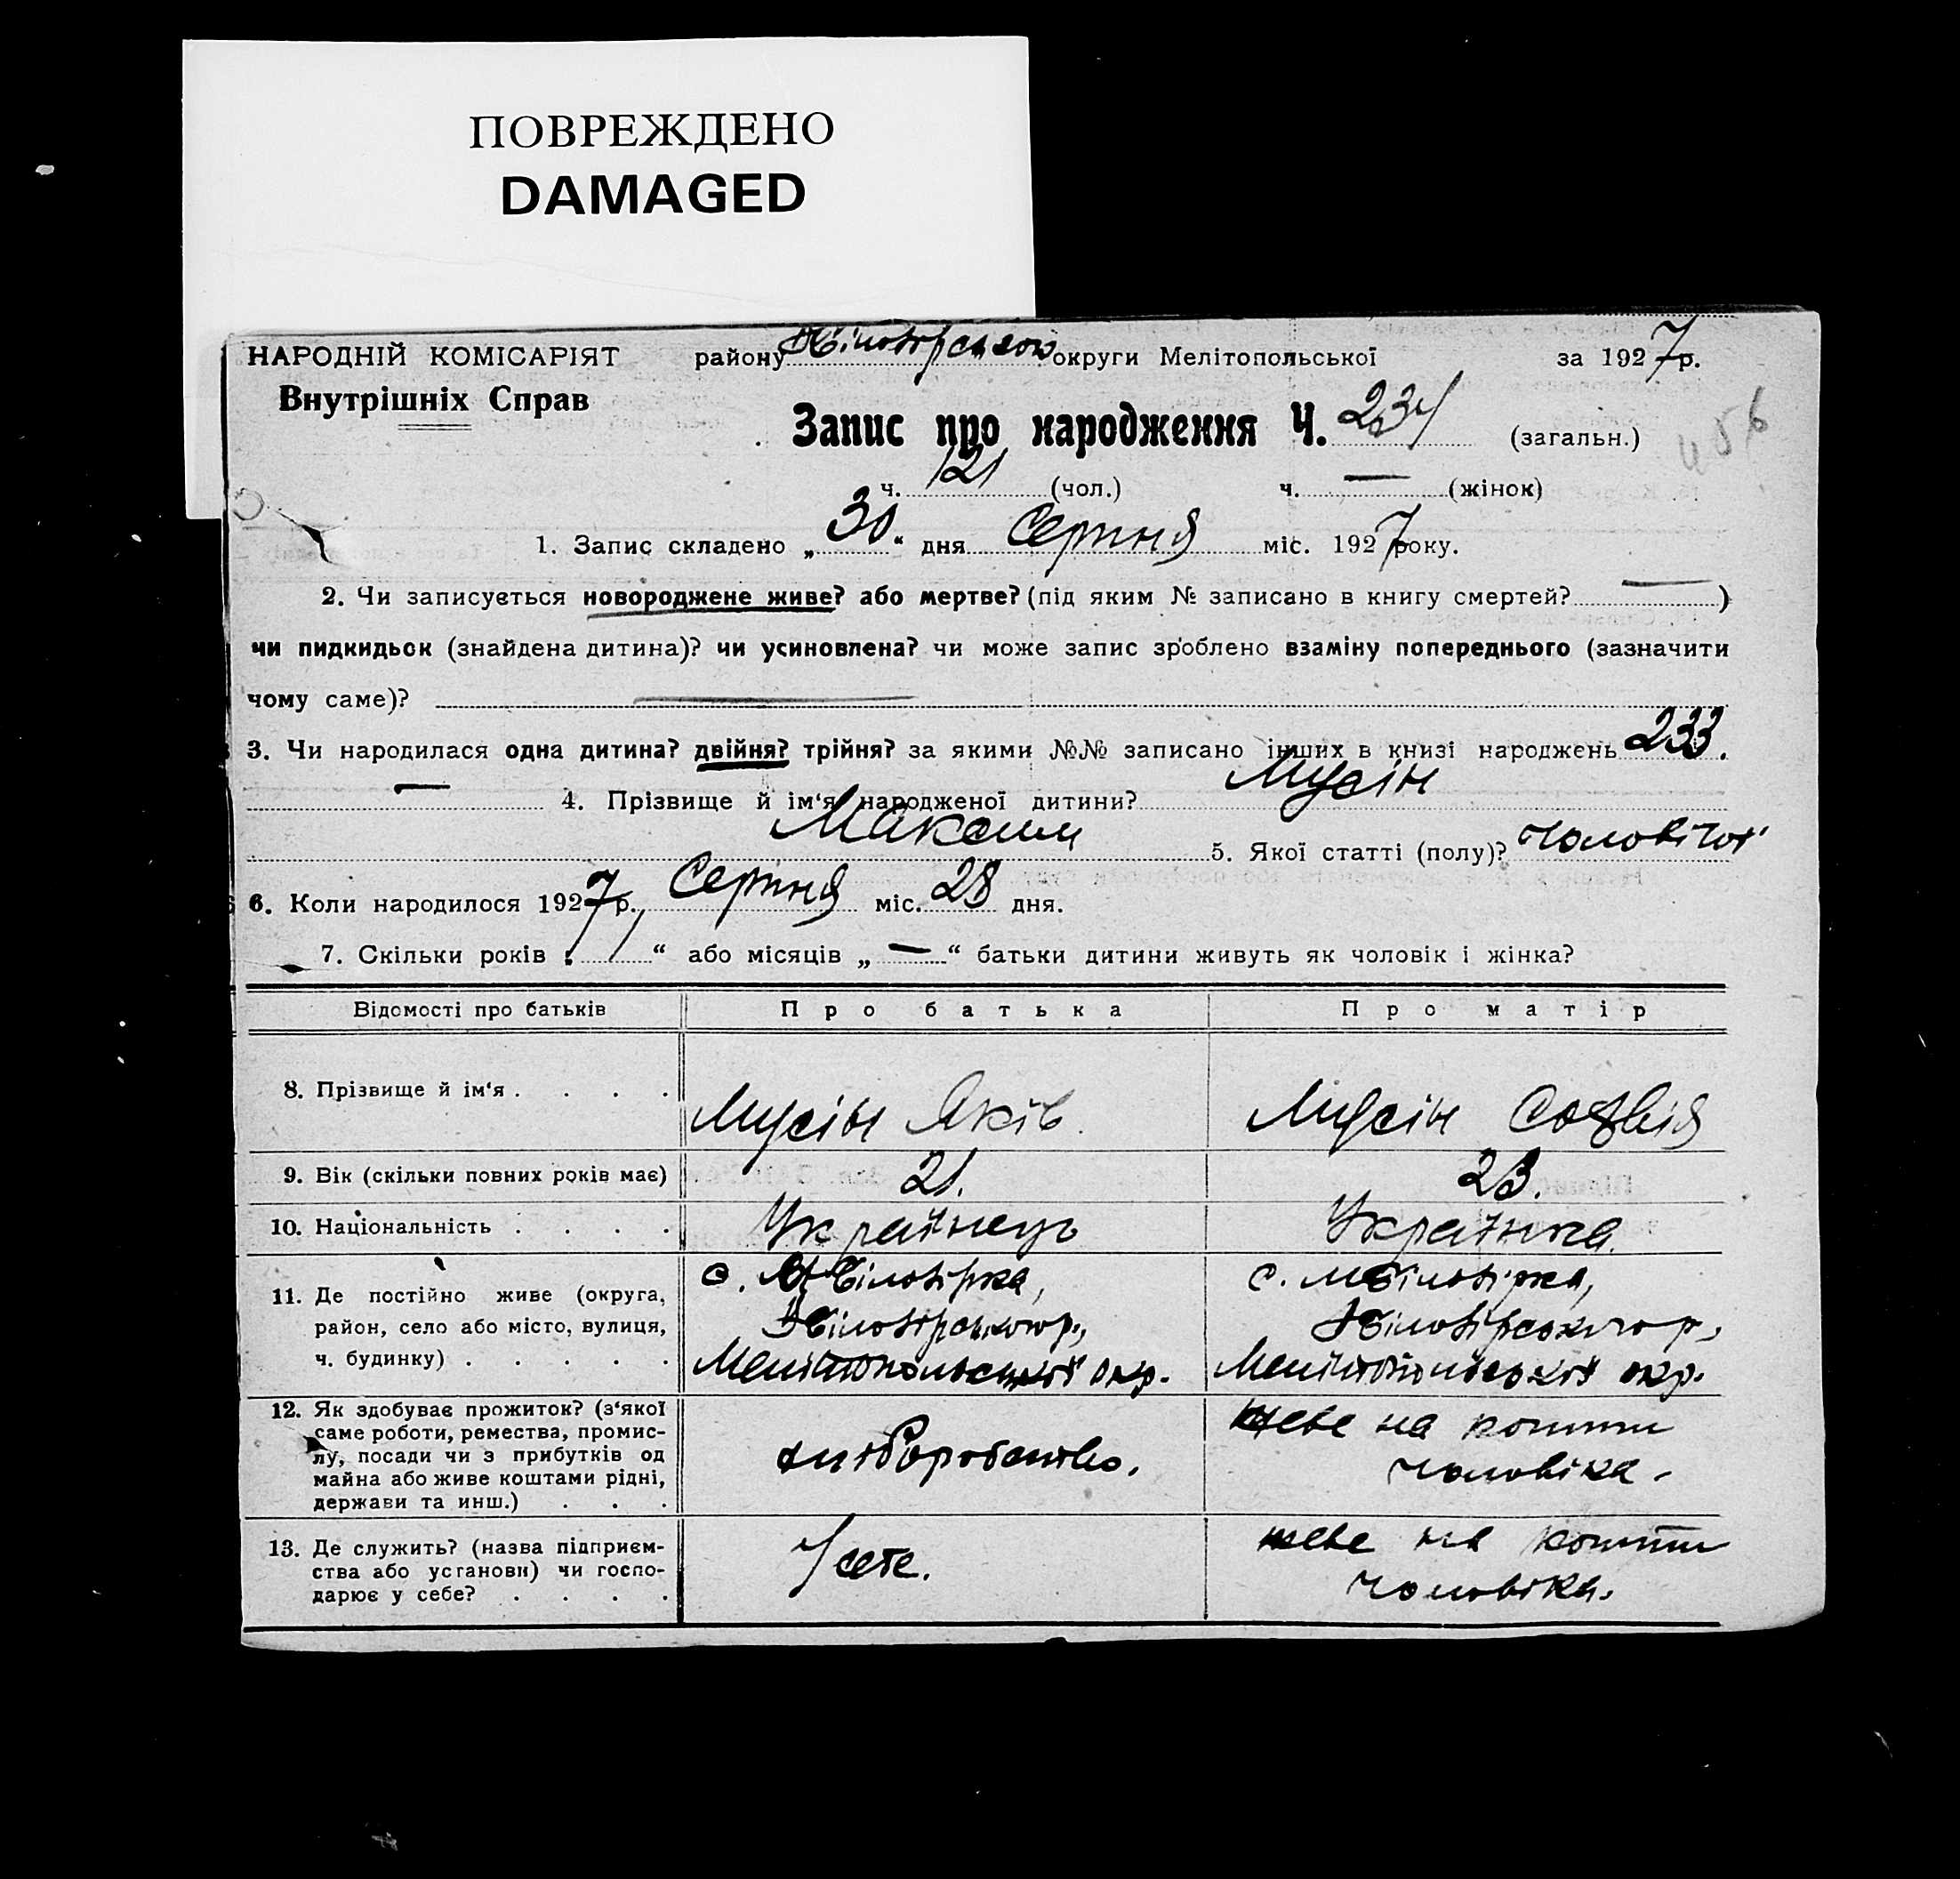 ПОВРЕЖДЕНО
DAMAGED
НАРОДНІЙ КОМІСАРІЯТ району округи Мелітопольської за 1927 р.
Внутрішніх Справ
Запис про народження Ч. 234 (загальн.)
ч. 121 (чол.) ч. — (жінок)
1. Запис складено „30“ дня Серпня міс. 1927 року.
2. Чи записується новороджене живе? або мертве? (під яким № записано в книгу смертей? — )
чи пидкидьок (знайдена дитина)? чи усиновлена? чи може запис зроблено взаміну попереднього (зазначити
чому саме)? —
3. Чи народилася одна дитина? двійня? трійня? за якими №№ записано інших в книзі народжень 233.
— 4. Прізвище й ім‘я народженої дитини? Мусін
Максим 5. Якої статті (полу)? чоловічої
6. Коли народилося 1927 р. Серпня міс. 28 дня.
7. Скільки років „ “ або місяців „—“ батьки дитини живуть як чоловік і жінка?
Відомості про батьків Про батька Про матір
8. Прізвище й ім‘я . . . . Мусін Яків. Мусін Софія
9. Вік (скільки повних років має) 21. 23.
10. Національність . . . . Українець Українка.
11. Де постійно живе (округа,
район, село або місто, вулиця,
ч. будинку) . . . . .
с. М Білозірка,
Білозірського р.,
Мелітопольської окр.
с. М Білозірка,
Білозірського р,
Мелітопольської окр.
12. Як здобуває прожиток? (з‘якої
саме роботи, ремества, промис-
лу, посади чи з прибутків од
майна або живе коштами рідні,
держави та инш.) . . .
хліборобство.
живе на кошти
чоловіка.
13. Де служить? (назва підприєм-
ства або установи) чи госпо-
дарює у себе? . . . .
У себе.
живе на кошти
чоловіка.